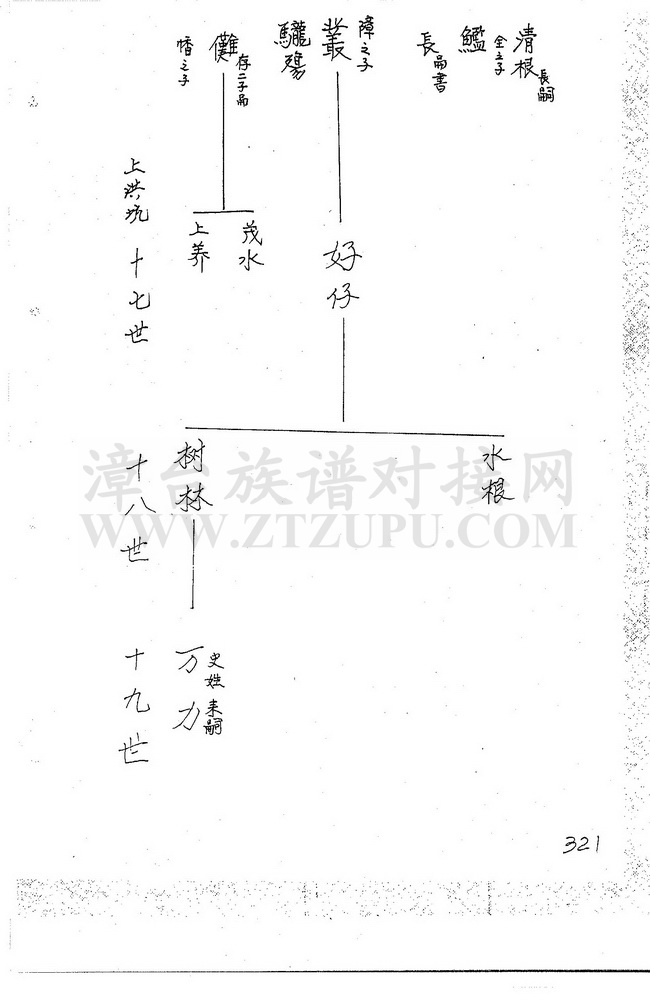 清根 長嗣
鱸 全之子
長 品書
叢 障之子
驪殤
儺 存二子品
惜之子
上洪坑 十七世
茂水
上养
好仔
十八世
水根
树林
漳台族谱对接网
WWW.ZTZUPU.COM
十九世
万力 史姓来嗣
321